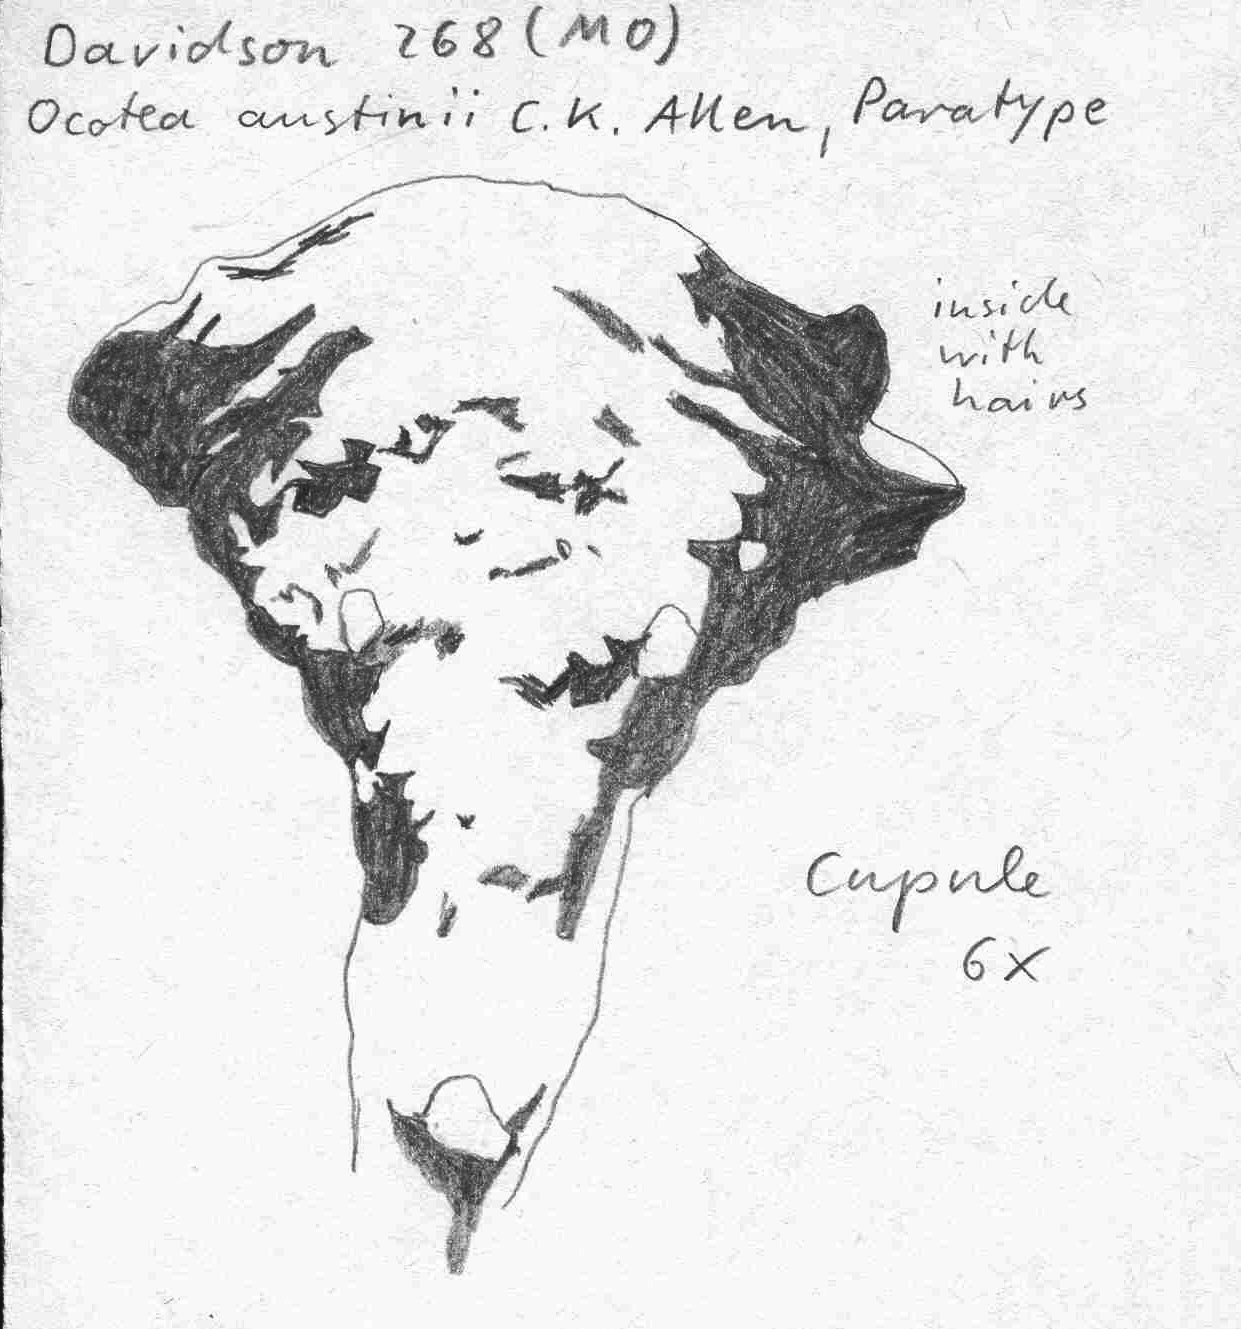 Davidson 268 (MO)
Ocotea austinii C.K. Allen, Paratype
inside
with
hairs
Cupule
6x